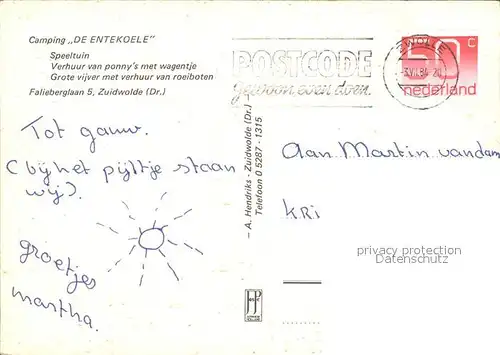 Camping „DE ENTEKOELE”
Speeltuin
Verhuur van ponny's met wagentje
Grote vijver met verhuur van roeiboten
Falieberglaan 5, Zuidwolde (Dr.)
POSTCODE
gewoon, even doen.
ZWOLLE
50 c
nederland
Tot gauw.
(bij het pijltje staan
wij).
groetjes
martha.
— A. Hendriks - Zuidwolde (Dr.)
Telefoon 0 5287 - 1315
Aan Martin vandam
KRi
privacy protection
Datenschutz